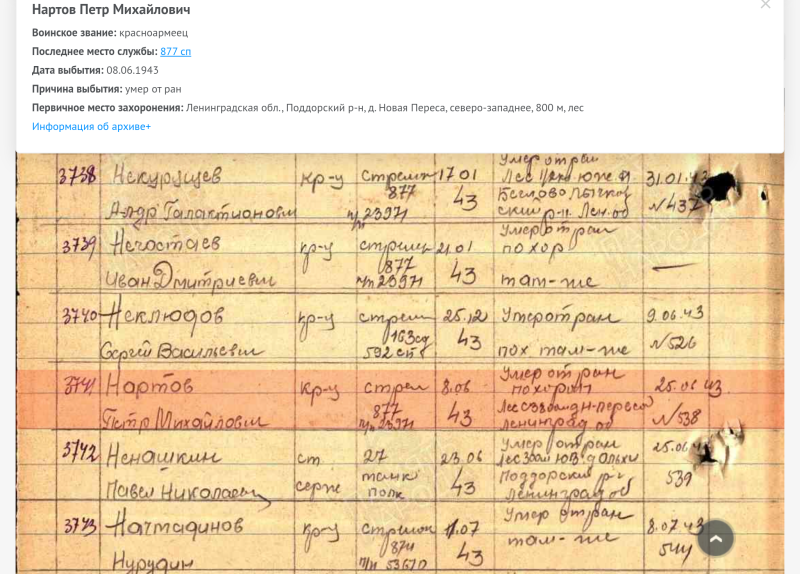 Нартов Петр Михайлович
Воинское звание: красноармеец
Последнее место службы: 877 сп
Дата выбытия: 08.06.1943
Причина выбытия: умер от ран
Первичное место захоронения: Ленинградская обл., Поддорский р-н, д. Новая Переса, северо-западнее, 800 м, лес
Информация об архиве+
умер от ран
3738 Некурящев кр-ц стрелк 17.01 31.01.43
877
Ал-др Галактионович п/п 23971 43 ский р-н Лен.об №437
умер от ран
3739 кр-ц стрелк 21.01 похор
877
Иван Дмитриевич п/п 23971 43 там-же —
3740 Неклюдов кр-ц стрелк 25.12 Умер от ран 9.06.43
163 сд
Сергей Васильевич 592 сп 43 пох там-же №526
Умер от ран
3741 Нартов кр-ц стрел 8.06 похорон 25.06.43
877
Петр Михайлович п/п 23971 43 Ленинград об №538
умер от ран
3742 Ненашкин ст 27 23.06 25.06
танк Поддорский р-н
Павел Николаевич серж полк 43 Ленинград об 539
Умер от ран
3743 кр-ц стрелок 07 там-же 8.07.43
Нурудин п/п 43 544